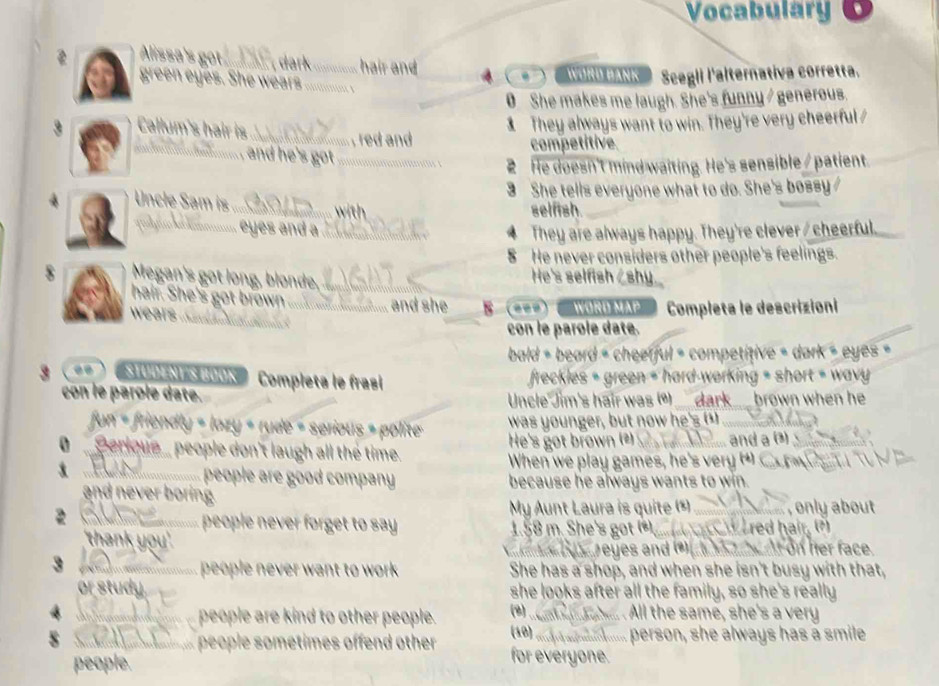 Vocabulary 6
2 Alissa's got ______, dark ______ hair and
green eyes. She wears ______.
3 Callum's hair is WAVY, red and
______, and he's got ______.
4 Uncle Sam is BALD with
______ eyes and a ______.
5 Megan's got long, blonde, ______
hair. She's got brown ______ and she
wears ______.
3 STUDENT'S BOOK Completa le frasi
con le parole date.
fun • friendly • lazy • rude • serious • polite
0 Serious people don't laugh all the time.
1 FUN people are good company
and never boring.
2 RUDE people never forget to say
'thank you'.
3 ______ people never want to work
or study.
4 ______ people are kind to other people.
5 ______ people sometimes offend other
people.
4 WORD BANK Scegli l'alternativa corretta.
0 She makes me laugh. She's funny / generous.
1 They always want to win. They're very cheerful /
competitive.
2 He doesn't mind waiting. He's sensible / patient.
3 She tells everyone what to do. She's bossy /
selfish.
4 They are always happy. They're clever / cheerful.
5 He never considers other people's feelings.
He's selfish / shy.
5 WORD MAP Completa le descrizioni
con le parole date.
bald • beard • cheerful • competitive • dark • eyes •
freckles • green • hard-working • short • wavy
Uncle Jim's hair was (0) dark brown when he
was younger, but now he's (1) BALD.
He's got brown (2) ______ and a (3) ______.
When we play games, he's very (4) COMPETITIVE
because he always wants to win.
My Aunt Laura is quite (5) ______, only about
1.58 m. She's got (6) ______ red hair, (7)
______ eyes and (8) ______ on her face.
She has a shop, and when she isn't busy with that,
she looks after all the family, so she's really
(9) ______. All the same, she's a very
(10) ______ person, she always has a smile
for everyone.